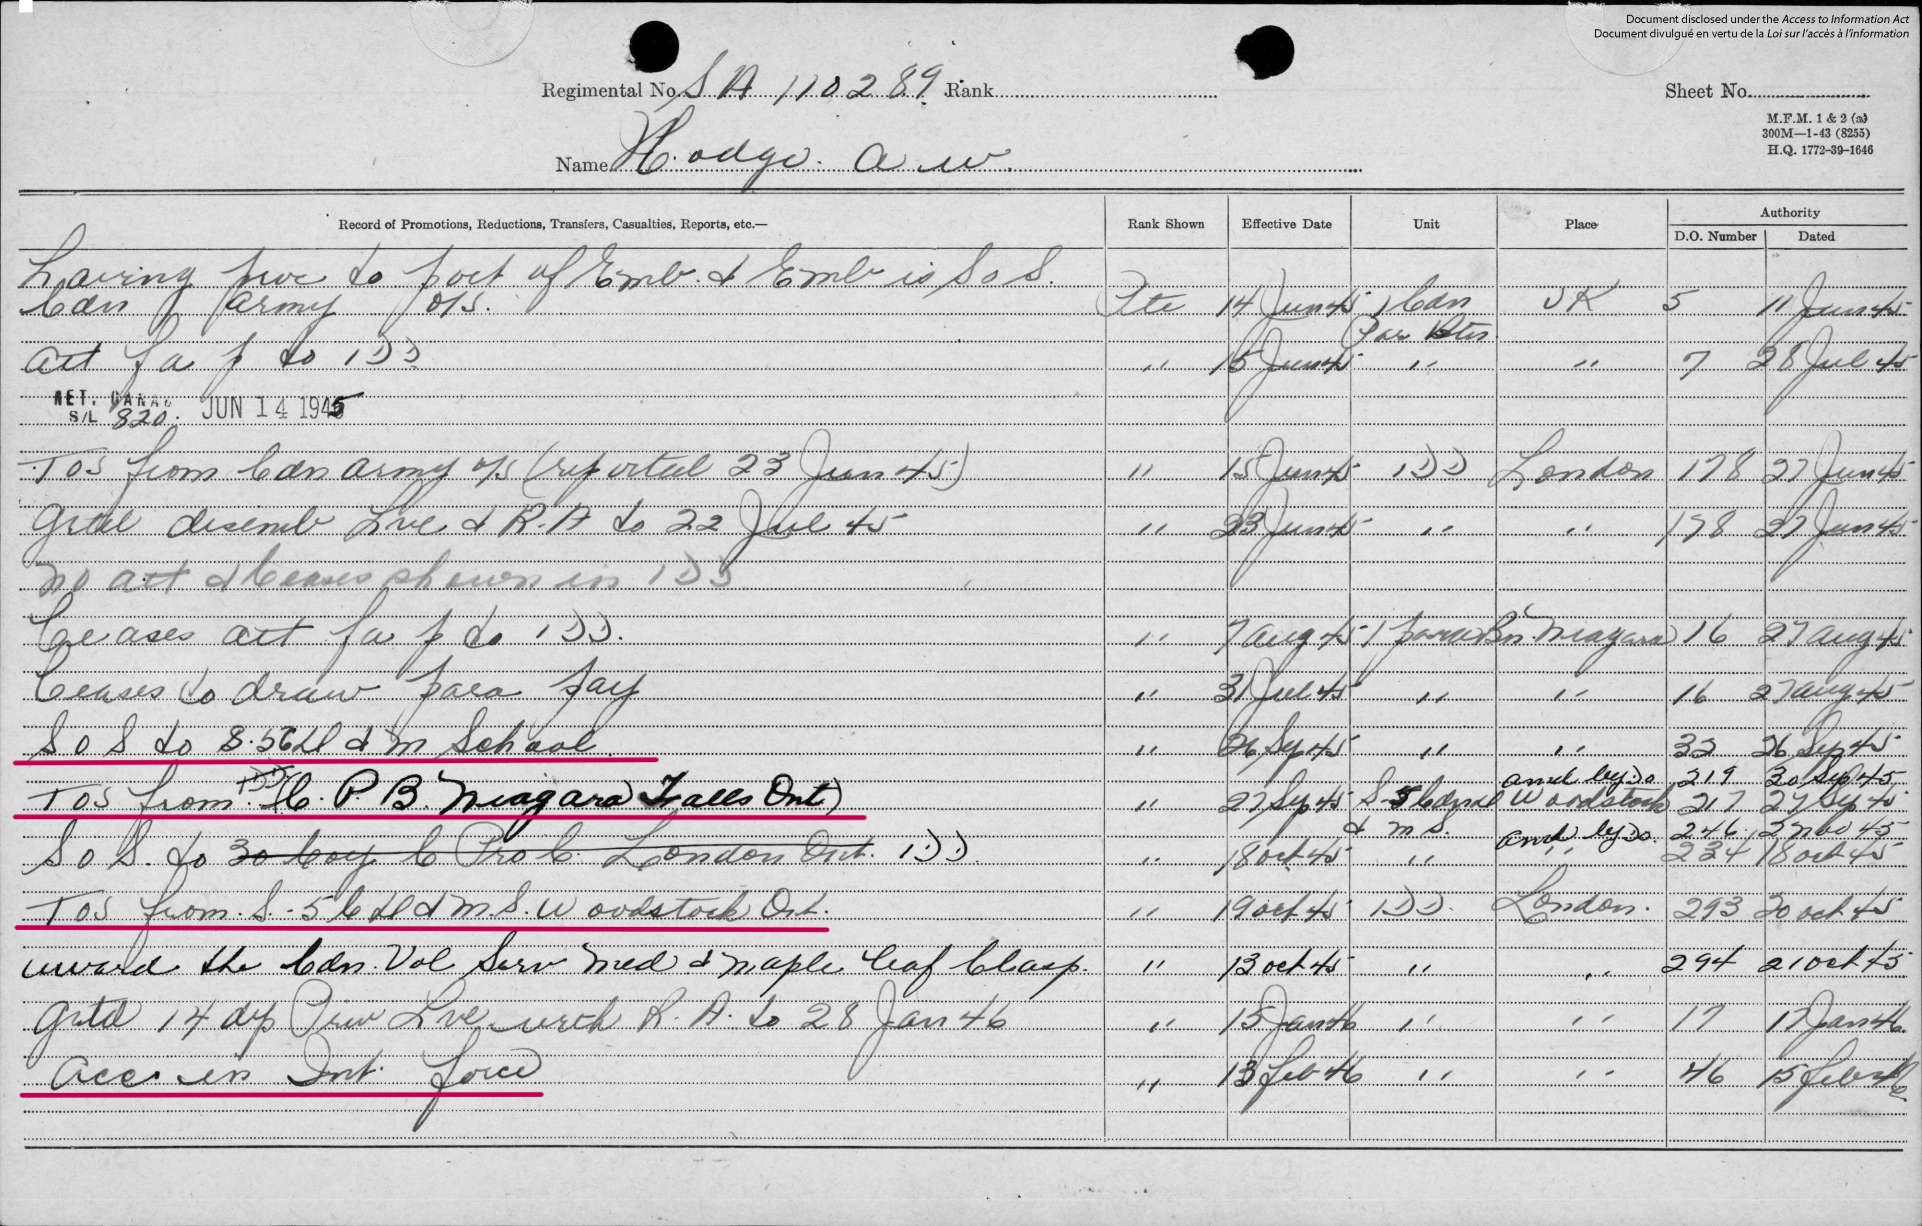 Document disclosed under the Access to Information Act
Document divulgué en vertu de la Loi sur l'accès à l'information
Regimental No. SA 110289 Rank
Sheet No.
M.F.M. 1 & 2 (a)
300M—1-43 (8255)
H.Q. 1772-39-1646
Name Hodge. A W.
Record of Promotions, Reductions, Transfers, Casualties, Reports, etc.— Rank Shown Effective Date Unit Place Authority
D.O. Number Dated
Having proc to port of Emb. & Emb is SoS.
Cdn Army o/s. Pte 14 Jun 45 1 Cdn UK 5 11 Jun 45
Par Btn.
Att fa p to 1DD. " 15 Jun 45 " " 7 28 Jul 45
RET. CANADA
S/L 820. JUN 14 1945
TOS from Cdn Army o/s (reported 23 Jun 45) " 15 Jun 45 1DD London 178 27 Jun 45
Grtd disemb Lve & R.A to 22 Jul 45 " 23 Jun 45 " " 178 27 Jun 45
No att & Ceases shown in 1DD
Ceases att fa p to 1DD. " 7 Aug 45 1 Para Bn Niagara 16 27 Aug 45
Ceases to draw para pay " 31 Jul 45 " " 16 27 Aug 45
SOS to S-5 C D & M School. " 26 Sep 45 " " 32 26 Sep 45
1DD amd by DO 219 30 Sep 45
TOS from (C. P. B. Niagara Falls Ont) " 27 Sep 45 S-5 Cdn D Woodstock 217 27 Sep 45
& M S. amd by DO. 246 2 Nov 45
SOS. to 30 Coy C Pro C. London Ont. 1DD. " 18 Oct 45 " " 234 18 Oct 45
TOS from S.-5 C D & M.S. Woodstock Ont. " 19 Oct 45 1DD. London. 293 20 Oct 45
award the Cdn. Vol Serv Med & Maple Leaf Clasp. " 13 Oct 45 " " 294 21 Oct 45
Grtd 14 dys Priv Lve with R.A. to 28 Jan 46 " 15 Jan 46 " " 17 17 Jan 46.
Acc. in Int. force " 13 Feb 46 " " 46 15 Feb 46